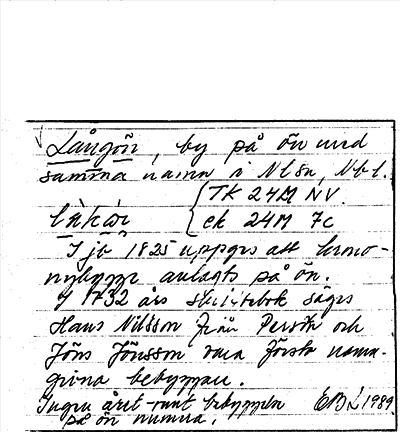 Långön, by på ön med
samma namn i Nlsn, Nbt.
TK 24M NV.
ek 24M 7c
I jb 1825 uppges att krono-
nybygge anlagts på ön.
I 1732 års skattebok säges
Hans Nilsson från Persön och
Jöns Jönsson vara första namn-
givna bebyggare.
Ingen året runt bebyggelse EBL 1989
på ön numera.